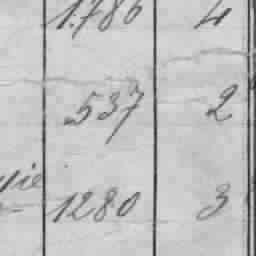 1.786 4
537 2
1280 3